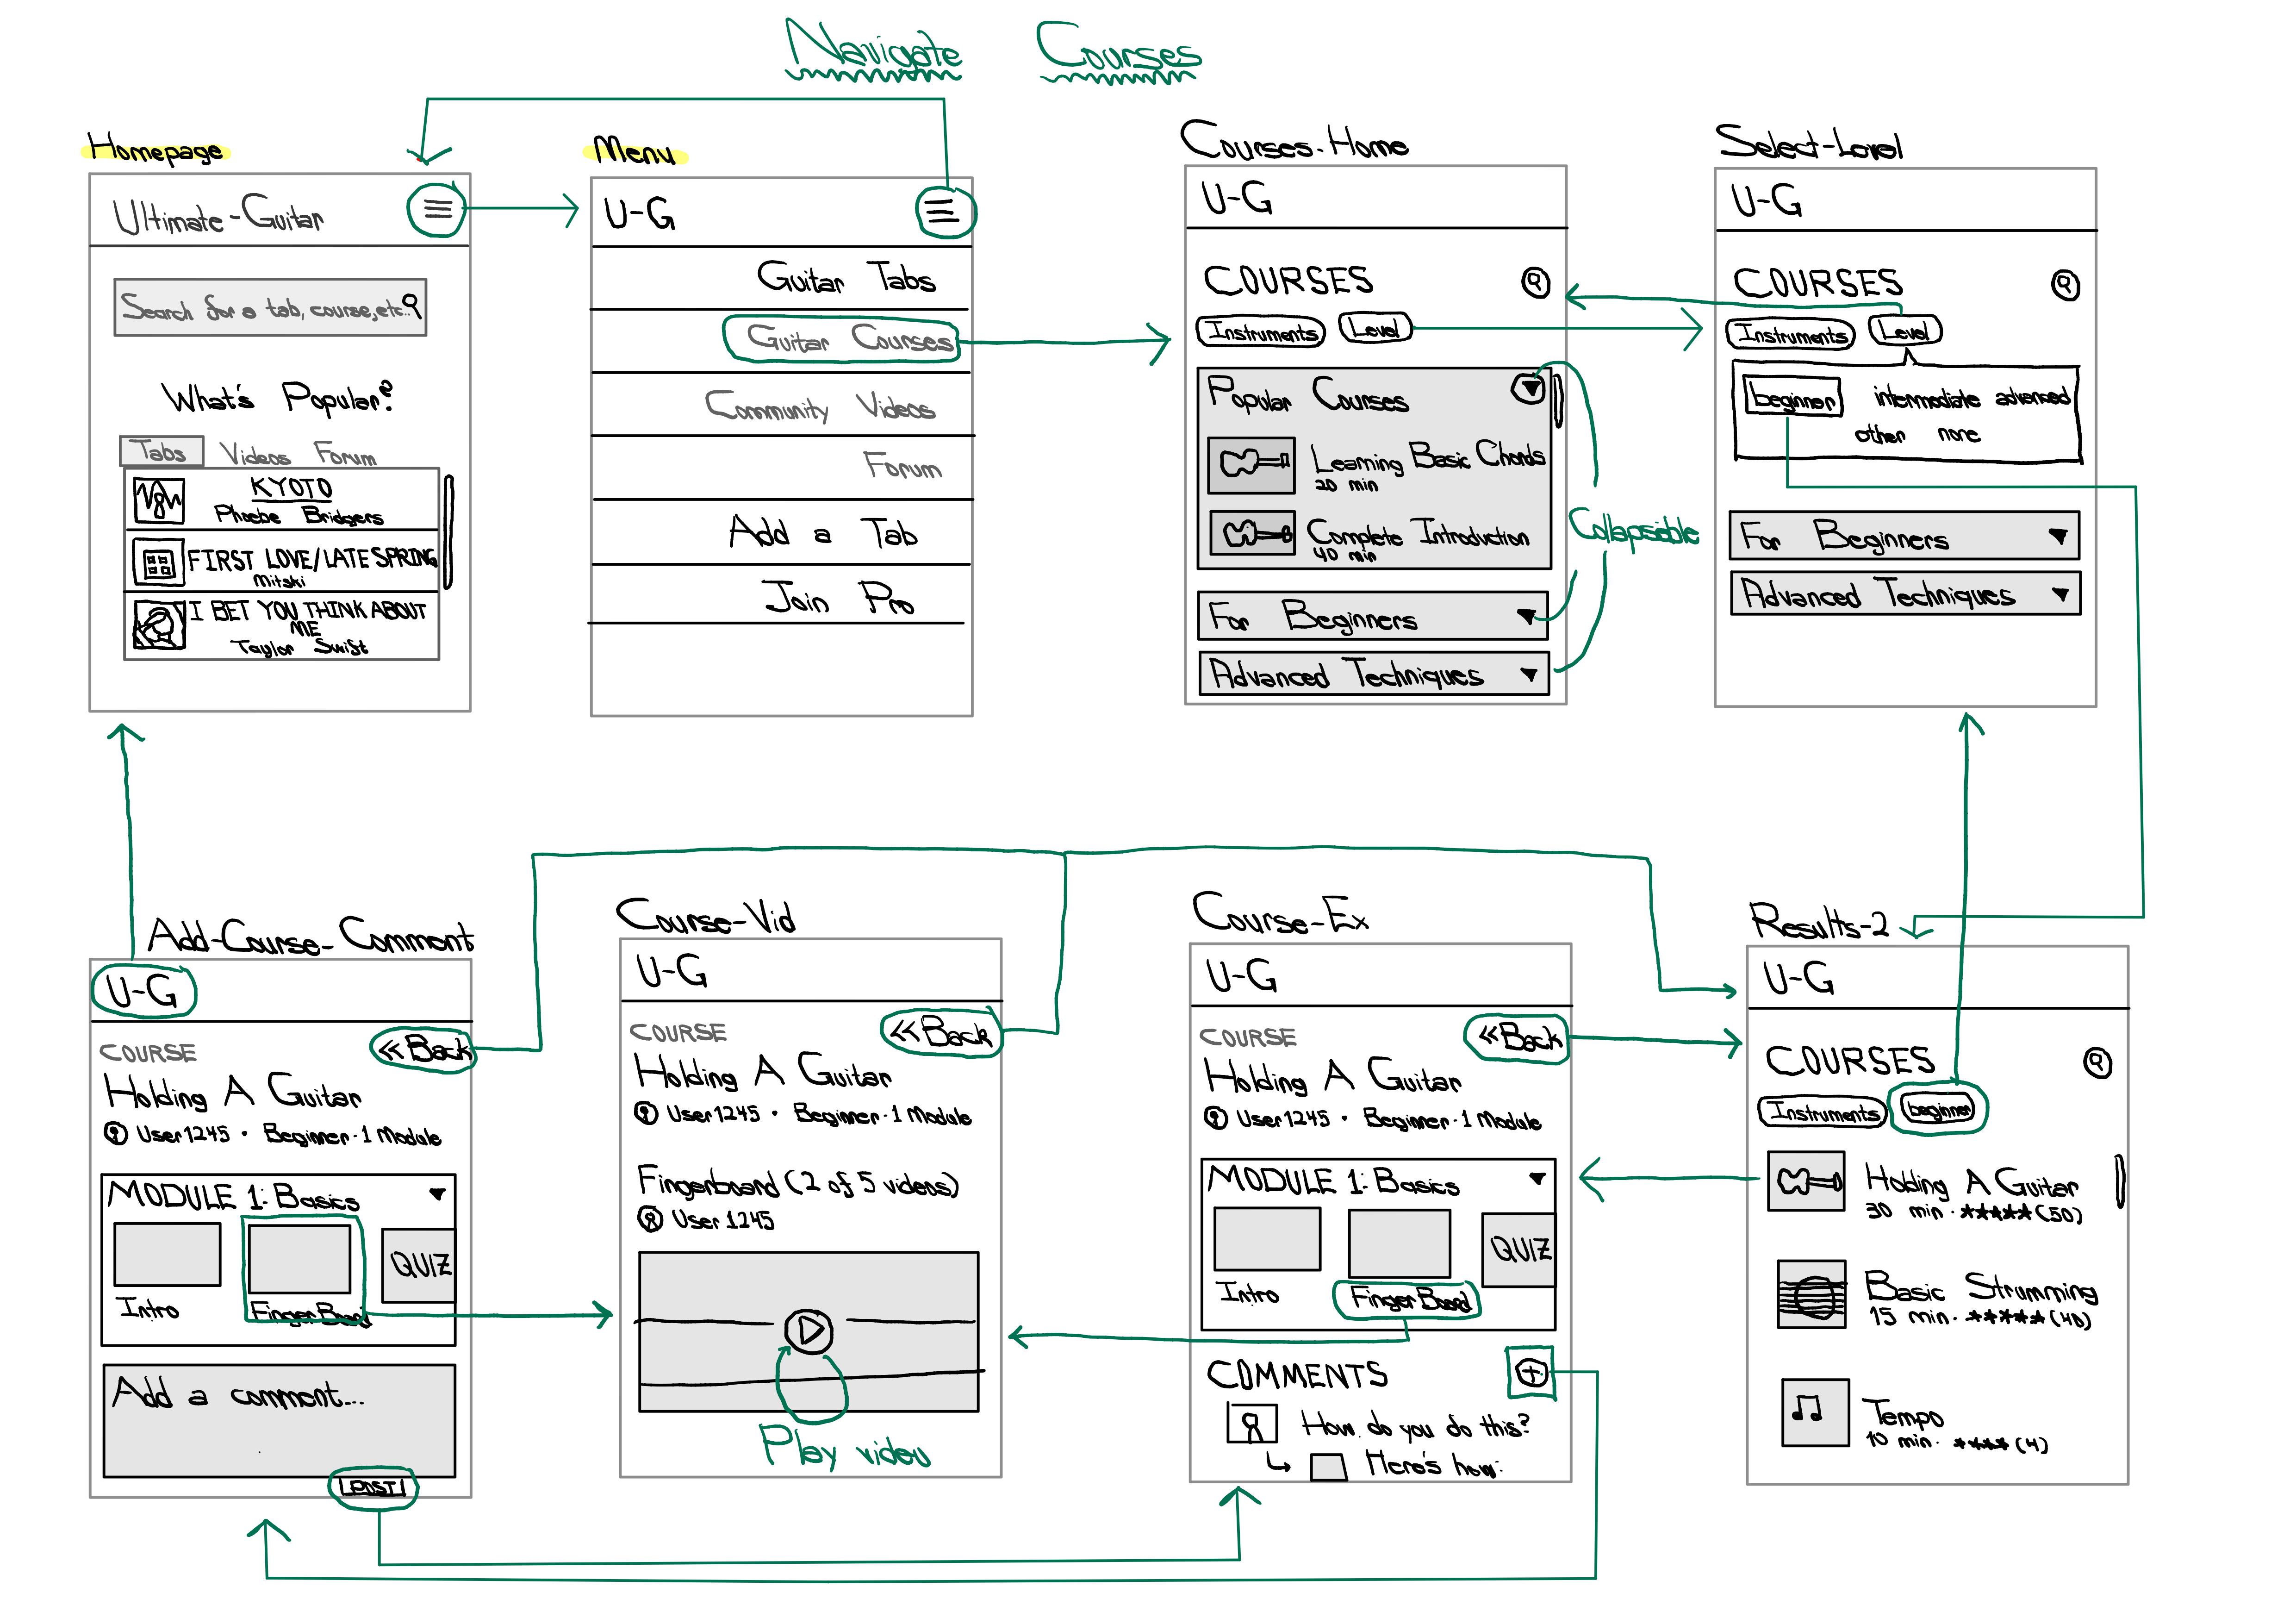 Navigate Courses
Homepage
Ultimate-Guitar
Search for a tab, course, etc..
What's Popular?
Tabs Videos Forum
KYOTO
Phoebe Bridgers
FIRST LOVE/LATE SPRING
Mitski
I BET YOU THINK ABOUT
ME
Taylor Swift
Menu
U-G
Guitar Tabs
Guitar Courses
Community Videos
Forum
Add a Tab
Join Pro
Courses-Home
U-G
COURSES
Instruments Level
Popular Courses
Learning Basic Chords
20 min
Complete Introduction
40 min
For Beginners
Advanced Techniques
Collapseible
Select-Level
U-G
COURSES
Instruments Level
beginner intermediate advanced
other none
For Beginners
Advanced Techniques
Add-Course-Comment
U-G
<<Back
COURSE
Holding A Guitar
User1245 • Beginner·1 Module
MODULE 1: Basics
QUIZ
Intro FingerBoard
Add a comment...
POST!
Course-Vid
U-G
<<Back
COURSE
Holding A Guitar
User1245 • Beginner·1 Module
Fingerboard (2 of 5 videos)
User 1245
Play video
Course-Ex
U-G
<<Back
COURSE
Holding A Guitar
User1245 • Beginner·1 Module
MODULE 1: Basics
QUIZ
Intro FingerBoard
COMMENTS +
How do you do this?
Here's how:
Results-2
U-G
COURSES
Instruments beginner
Holding A Guitar
30 min·★★★★★(50)
Basic Strumming
15 min·★★★★★(40)
Tempo
10 min·★★★★(4)